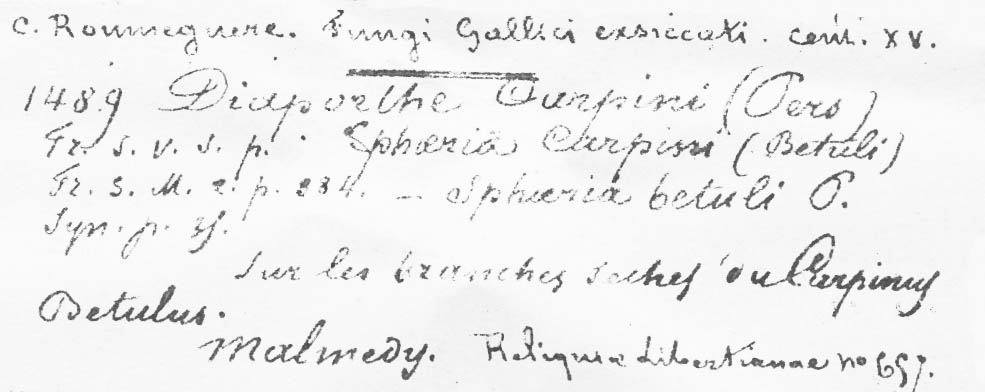 C. Roumeguere. Fungi Gallici exsiccati. cent. XV.
1489 Diaporthe Carpini (Pers)
Fr. S. V. S. p. Sphæria Carpini (Betuli)
Fr. S. M. 2. p. 384. — Sphæria betuli P.
Syn. p.
Sur les branches seches du Carpinus
Betulus.
Malmedy. Reliquiæ Libertianae no 657.